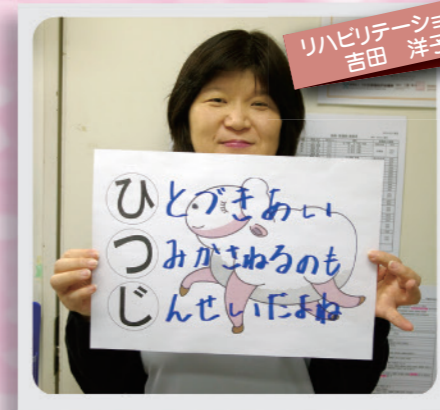 リハビリテーショ
吉田 洋子
ひとづきあい
つみかさねるのも
じんせいだよね